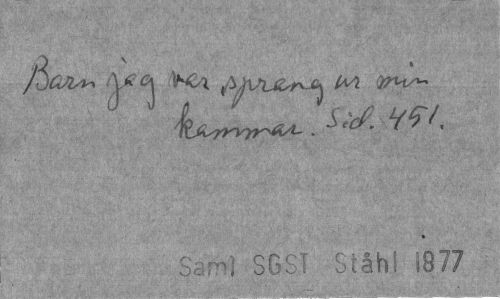 Barn jag var, sprang ur min
kammar. Sid. 451.
Saml SGST Ståhl 1877